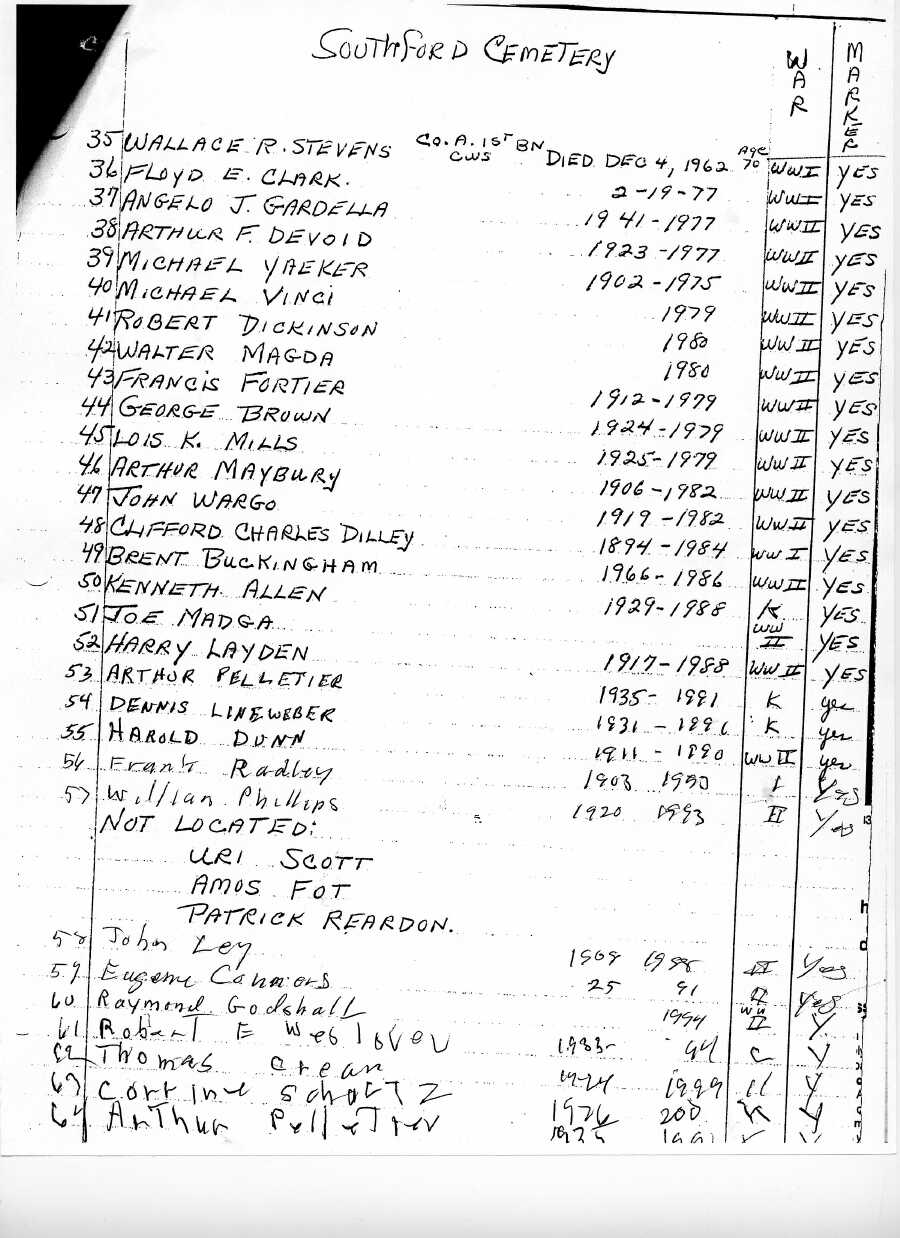 SOUTHFORD CEMETERY
WAR
MARKER
35 WALLACE R. STEVENS CO. A. 1ST BN CWS DIED DEC 4, 1962 Age 70 WWI YES
36 FLOYD E. CLARK. 2-19-77 WWI YES
37 ANGELO J. GARDELLA 1941-1977 WWII YES
38 ARTHUR F. DEVOID 1923-1977 WWII YES
39 MICHAEL YAEKER 1902-1975 WWII YES
40 MICHAEL VINCI 1979 WWII YES
41 ROBERT DICKINSON 1980 WWII YES
42 WALTER MAGDA 1980 WWII YES
43 FRANCIS FORTIER 1912-1979 WWII YES
44 GEORGE BROWN 1924-1979 WWII YES
45 LOIS K. MILLS 1925-1979 WWII YES
46 ARTHUR MAYBURY 1906-1982 WWII YES
47 JOHN WARGO 1919-1982 WWII YES
48 CLIFFORD CHARLES DILLEY 1894-1984 WWI YES
49 BRENT BUCKINGHAM 1966-1986 WWII YES
50 KENNETH ALLEN 1929-1988 K YES
51 JOE MADGA WWII YES
52 HARRY LAYDEN 1917-1988 WWII YES
53 ARTHUR PELLETIER 1935-1991 K yes
54 DENNIS LINEWEBER 1931-1991 K yes
55 HAROLD DUNN 1911-1990 WWII yes
56 Frank Radley 1903 1990 I Yes
57 Willian Phillips 1920 1993 II Yes
NOT LOCATED:
URI SCOTT
AMOS FOT
PATRICK REARDON.
58 John Ley 1909 1988 II Yes
59 Eugene Cannors 25 91 II Yes
60 Raymond Godshall 1994 WWII Y.
61 Robert E Weslover 1933- 94 C Y
62 Thomas Crean 1924 1999 II Y
63 Corrine Schortz 1926 200 K Y
64 Arthur Pelletier 1935